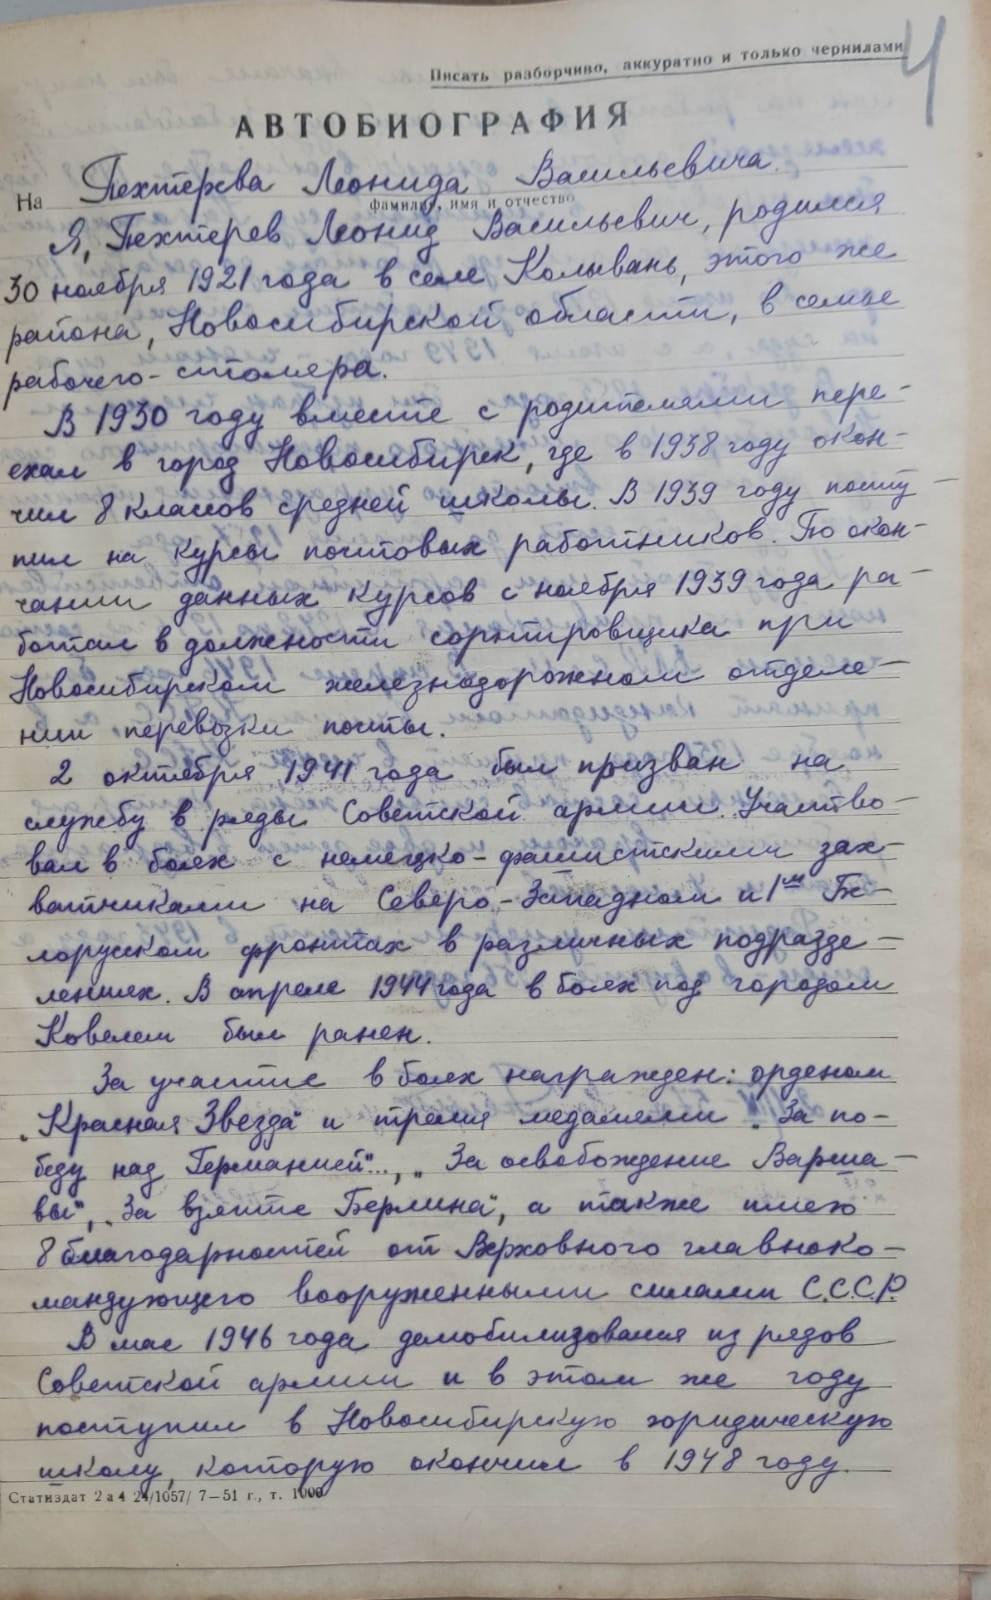 4
Писать разборчиво, аккуратно и только чернилами
АВТОБИОГРАФИЯ
На Пехтерева Леонида Васильевича.
фамилия, имя и отчество
Я, Пехтерев Леонид Васильевич, родился
30 ноября 1921 года в селе Колывань, этого же
района, Новосибирской области, в семье
рабочего-столяра.
В 1930 году вместе с родителями пере-
ехал в город Новосибирск, где в 1938 году окон-
чил 8 классов средней школы. В 1939 году посту-
пил на курсы почтовых работников. По окон-
чании данных курсов с ноября 1939 года ра-
ботал в должности сортировщика при
Новосибирском железнодорожном отделе-
нии перевозки почты.
2 октября 1941 года был призван на
службу в ряды Советской армии. Участво-
вал в боях с немецко-фашистскими зах-
ватчиками на Северо-Западном и 1ом Бе-
лорусском фронтах в различных подразде-
лениях. В апреле 1944 года в боях под городом
Ковелем был ранен.
За участие в боях награжден: орденом
„Красная Звезда" и тремя медалями „За по-
беду над Германией"..., „За освобождение Варша-
вы", „За взятие Берлина", а также имею
8 благодарностей от Верховного главноко-
мандующего вооруженными силами С.С.С.Р.
В мае 1946 года демобилизовался из рядов
Советской армии и в этом же году
поступил в Новосибирскую юридическую
школу, которую окончил в 1948 году.
Статиздат 2 а 4 24/1057/ 7—51 г., т. 1000